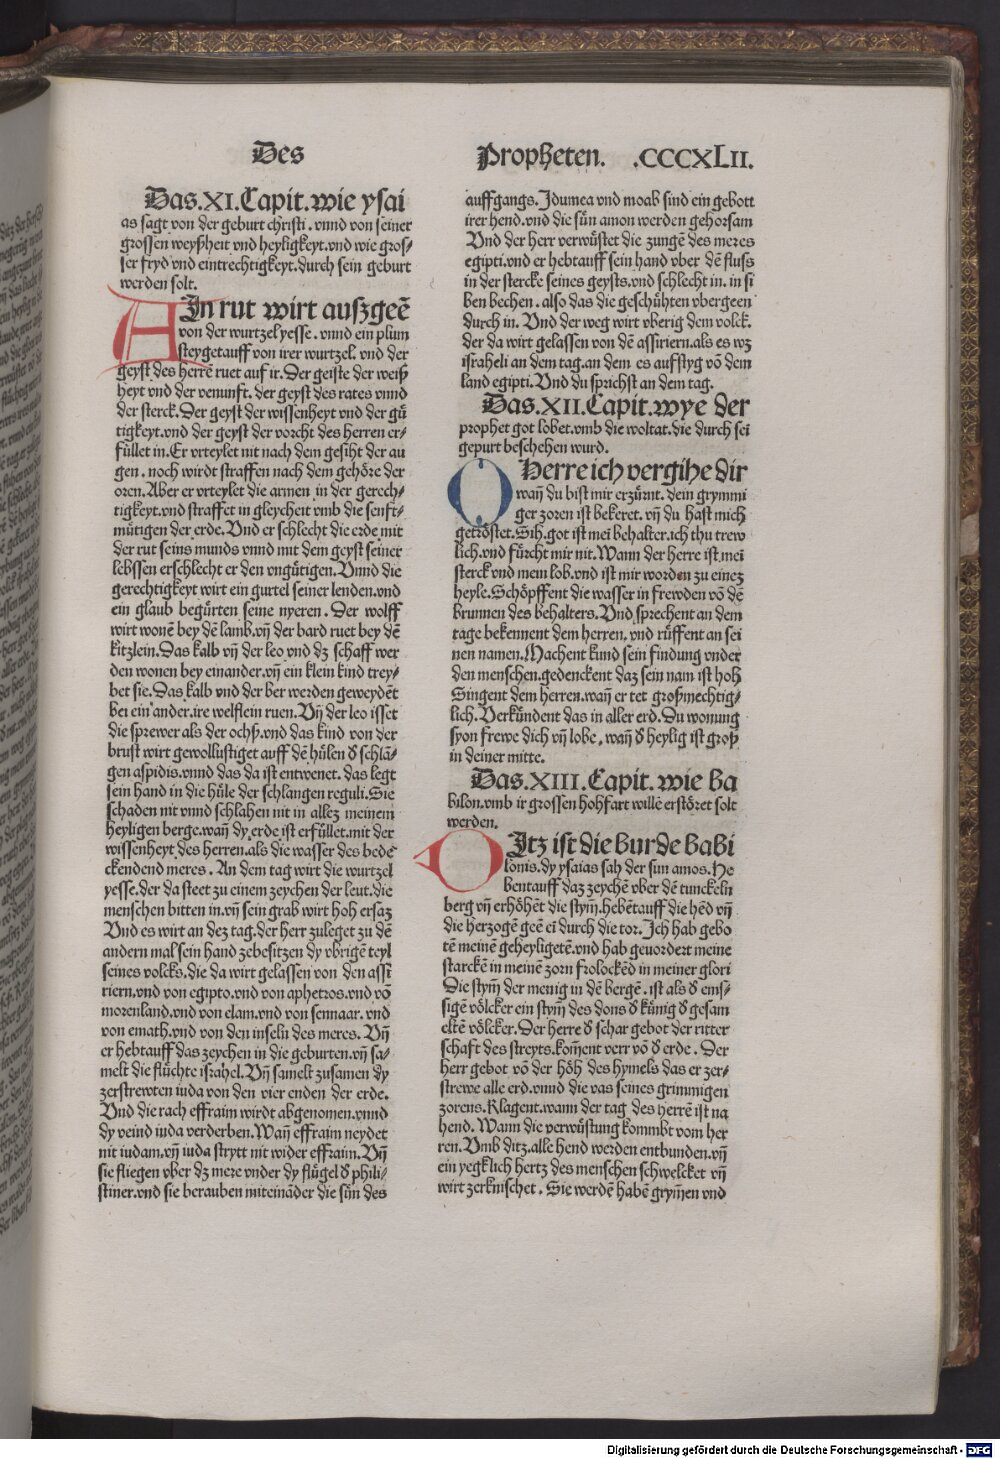 Des
Propheten. .CCCXLII.
Das.XI.Capit.wie ysai
as sagt von der geburt christi.vnnd von seiner
grossen weyßheit vnd heyligkeyt.vnd wie gros⸗
ser fryd vnd eintrechtigkeyt.durch sein geburt
werden solt.
AIn rut wirt außgeē
von der wurtzel yesse.vnnd ein plum
steyget auff von irer wurtzel. vnd der
geyst des herrē ruet auf ir.Der geiste der weiß
heyt vnd der venunft. der geyst des rates vnnd
der sterck.Der geyst der wissenheyt vnd der gū
tigkeyt.vnd der geyst der vorcht des herren er⸗
füllet in.Er vrteylet nit nach dem gesiht der au
gen.noch wirdt straffen nach dem gehöre der
oren.Aber er vrteylet die armen in der gerech⸗
tigkeyt.vnd straffet in gleycheit vmb die senft⸗
mütigen der erde.Vnd er schlecht die erde mit
der rut seins munds vnnd mit dem geyst seiner
lebssen erschlecht er den vngütigen.Vnnd die
gerechtigkeyt wirt ein gurtel seiner lenden.vnd
ein glaub begürten seine nyeren. Der wolff
wirt wonē bey dē lamb.vn̄ der bard ruet bey dē
kitzlein.Das kalb vn̄ der leo vnd dz schaff wer
den wonen bey einander.vn̄ ein klein kind trey⸗
bet sie.Das kalb vnd der ber werden geweydēt
bei ein ander.ire welflein ruen.Vn̄ der leo isset
die sprewer als der ochß.vnd das kind von der
brust wirt gewollustiget auff dē hülen d̓ schlā⸗
gen aspidis.vnnd das da ist entwenet. das legt
sein hand in die hüle der schlangen reguli.Sie
schaden nit vnnd schlahen nit in allez meinem
heyligen berge.wan̄ dy erde ist erfüllet.mit der
wissenheyt des herren.als die wasser des bede
ckendend meres. An dem tag wirt die wurtzel
yesse.der da steet zu einem zeychen der leut.die
menschen bitten in.vn̄ sein grab wirt hoh ersaz
Vnd es wirt an dez tag.der herr zuleget zu dē
andern mal sein hand zebesitzen dy vbrigē teyl
seines volcks.die da wirt gelassen von den assi
riern.vnd von egipto.vnd von aphetros.vnd vō
morenland.vnd von elam.vnd von sennaar. vnd
von emath.vnd von den inseln des meres. Vn̄
er hebt auff das zeychen in die geburten.vn̄ sa⸗
melt die flüchte israhel.Vn̄ samelt zusamen dy
zerstrewten iuda von den vier enden der erde.
Vnd die rach effraim wirdt abgenomen.vnnd
dy veind iuda verderben.Wan̄ effraim neydet
nit iudam.vn̄ iuda strytt nit wider effraim.Vn̄
sie fliegen vber dz mere vnder dy flügel d̓ phili⸗
stiner.vnd sie berauben miteināder die sün des
auffgangs.Idumea vnd moab sind ein gebott
irer hend.vnd die sün amon werden gehorsam
Vnd der herr verwüstet die zungē des meres
egipti.vnd er hebt auff sein hand vber dē fluss
in der stercke seines geysts.vnd schlecht in. in si
ben bechen. also das die geschühten vbergeen
durch in. Vnd der weg wirt vberig dem volck.
der da wirt gelassen von dē assiriern.als es wz
israheli an dem tag.an dem es auffstyg vō dem
land egipti.Vnd du sprichst an dem tag.
Das.XII.Capit.wye der
prophet got lobet.vmb die woltat.die durch sei
gepurt beschehen wurd.
O Herre ich vergihe dir
wan̄ du bist mir erzürnt.dein grymmi
ger zoren ist bekeret. vn̄ du hast mich
getröstet.Sih.got ist mei behalter.ich thu trew
lich.vnd fürcht mir nit.Wann der herre ist mei
sterck vnd mein lob.vnd ist mir worden zu einez
heyle.Schöpffent die wasser in frewden vō dē
brunnen des behalters.Vnd sprechent an dem
tage bekennent dem herren. vnd rüffent an sei
nen namen.Machent kund sein findung vnder
den menschen.gedenckent daz sein nam ist hoh
Singent dem herren.wan̄ er tet großmechtig⸗
lich.Verkündent das in aller erd.Du wonung
syon frewe dich vn̄ lobe. wan̄ d̓ heylig ist groß
in deiner mitte.
Das.XIII.Capit.wie ba
bilon.vmb ir grossen hohfart willē erstöret solt
werden.
DItz ist die burde babi
lonis.dy ysaias sah der sun amos.He
bent auff daz zeychē vber dē tunckeln
berg vn̄ erhöhēt die stym̄.hebēt auff die hēd vn̄
die herzogē geē ei durch die tor. Ich hab gebo
tē meinē geheyligetē.vnd hab geuordert meine
starckē in meinē zorn frolockēd in meiner glori
Die stym̄ der menig in dē bergē. ist als d̓ emß⸗
sigē völcker ein stym̄ des dons d̓ künig d̓ gesam
eltē völcker.Der herre d̓ schar gebot der ritter
schaft des streyts.kom̄ent verr vō d̓ erde. Der
herr gebot vō der höh des hymels das er zer⸗
strewe alle erd.vnnd die vas seines grimmigen
zorens.Klagent.wann der tag des herrē ist na
hend. Wann die verwüstung kommbt vom her
ren.Vmb ditz.alle hend werden entbunden.vn̄
ein yegklich hertz des menschen schwelcket vn̄
wirt zerknischet. Sie werdē habē grym̄en vnd
Digitalisierung gefördert durch die Deutsche Forschungsgemeinschaft - DFG